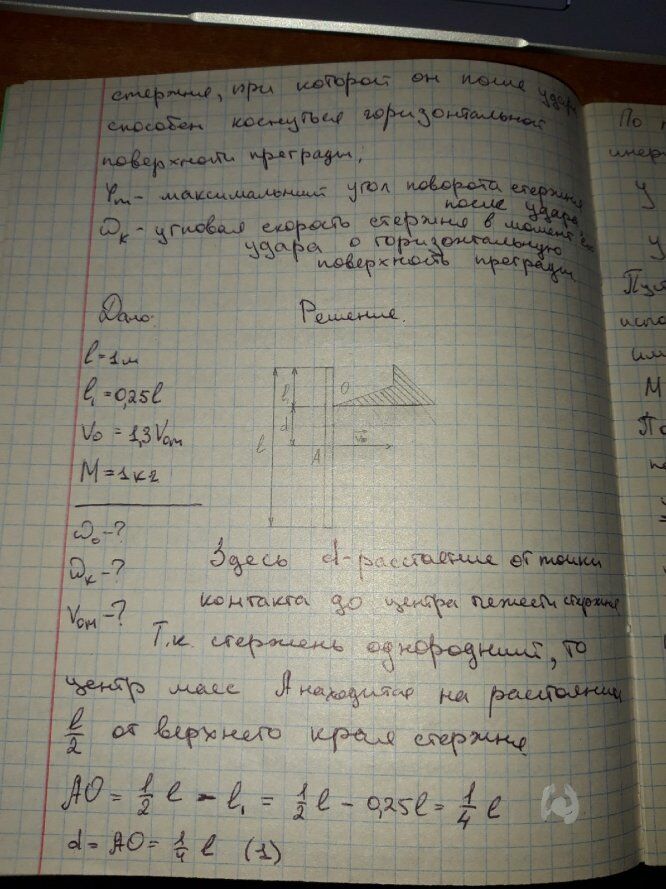 стержня, при которой он после удара
способен коснуться горизонтальной
поверхности преграды;
φm - максимальний угол поворота стержня
после удара
ωк - угловая скорость стержня в момент его
удара о горизонтальную
поверхность преграды
Дано:
Решение.
l = 1м
l₁ = 0,25l
V₀ = 1,3V₀m
M = 1кг
ω₀ - ?
ωк - ?
V₀m - ?
l
l₁
d
O
A
V₀
Здесь d - расстояние от точки
контакта до центра тяжести стержня
Т.к. стержень однородний, то
центр масс A находится на расстоянии
l/2 от верхнего края стержня
AO = 1/2 l - l₁ = 1/2 l - 0,25l = 1/4 l
d = AO = 1/4 l (1)
По
инер
у
у
исполь
им
M
По